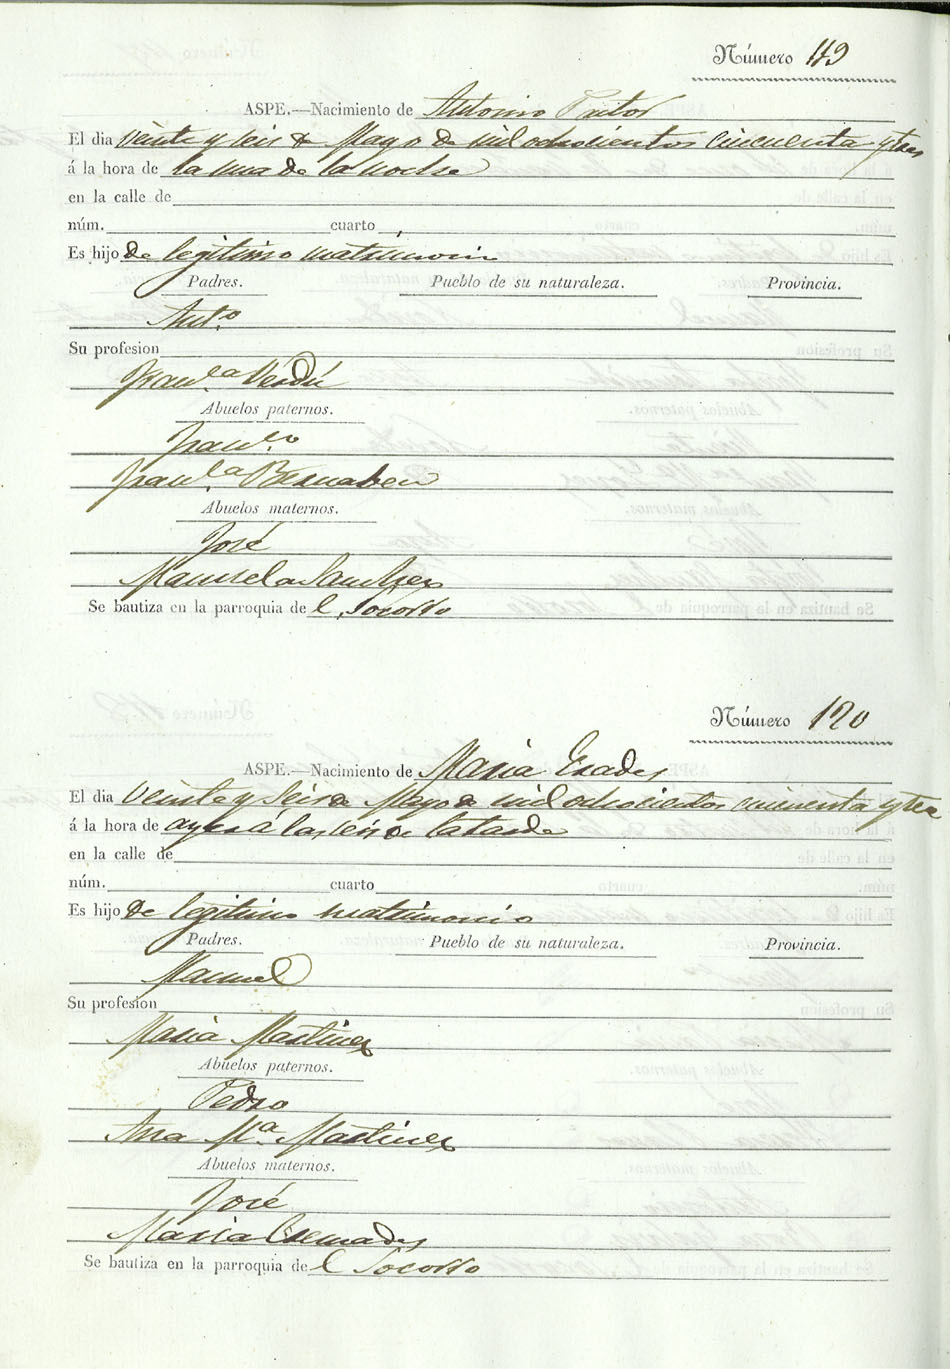 Número 119
ASPE.—Nacimiento de Antonio Pastor
El dia veinte y seis de Mayo de mil ochocientos cincuenta y tres
á la hora de la una de la noche
en la calle de
núm. cuarto
Es hijo de legitimo matrimonio
Padres. Pueblo de su naturaleza. Provincia.
Ant.o
Su profesion
Fran.ca Verdú
Abuelos paternos.
Fran.co
Fran.ca Bernabeu
Abuelos maternos.
José
Manuela Sanchez
Se bautiza en la parroquia de l Socorro
Número 120
ASPE.—Nacimiento de Maria
El dia veinte y seis de Mayo de mil ochocientos cincuenta y tres
á la hora de ayer á las seis de la tarde
en la calle de
núm. cuarto
Es hijo de legitimo matrimonio
Padres. Pueblo de su naturaleza. Provincia.
Manuel
Su profesion
Maria Martinez
Abuelos paternos.
Pedro
Ana M.a Martinez
Abuelos maternos.
José
Maria Cremades
Se bautiza en la parroquia de l Socorro